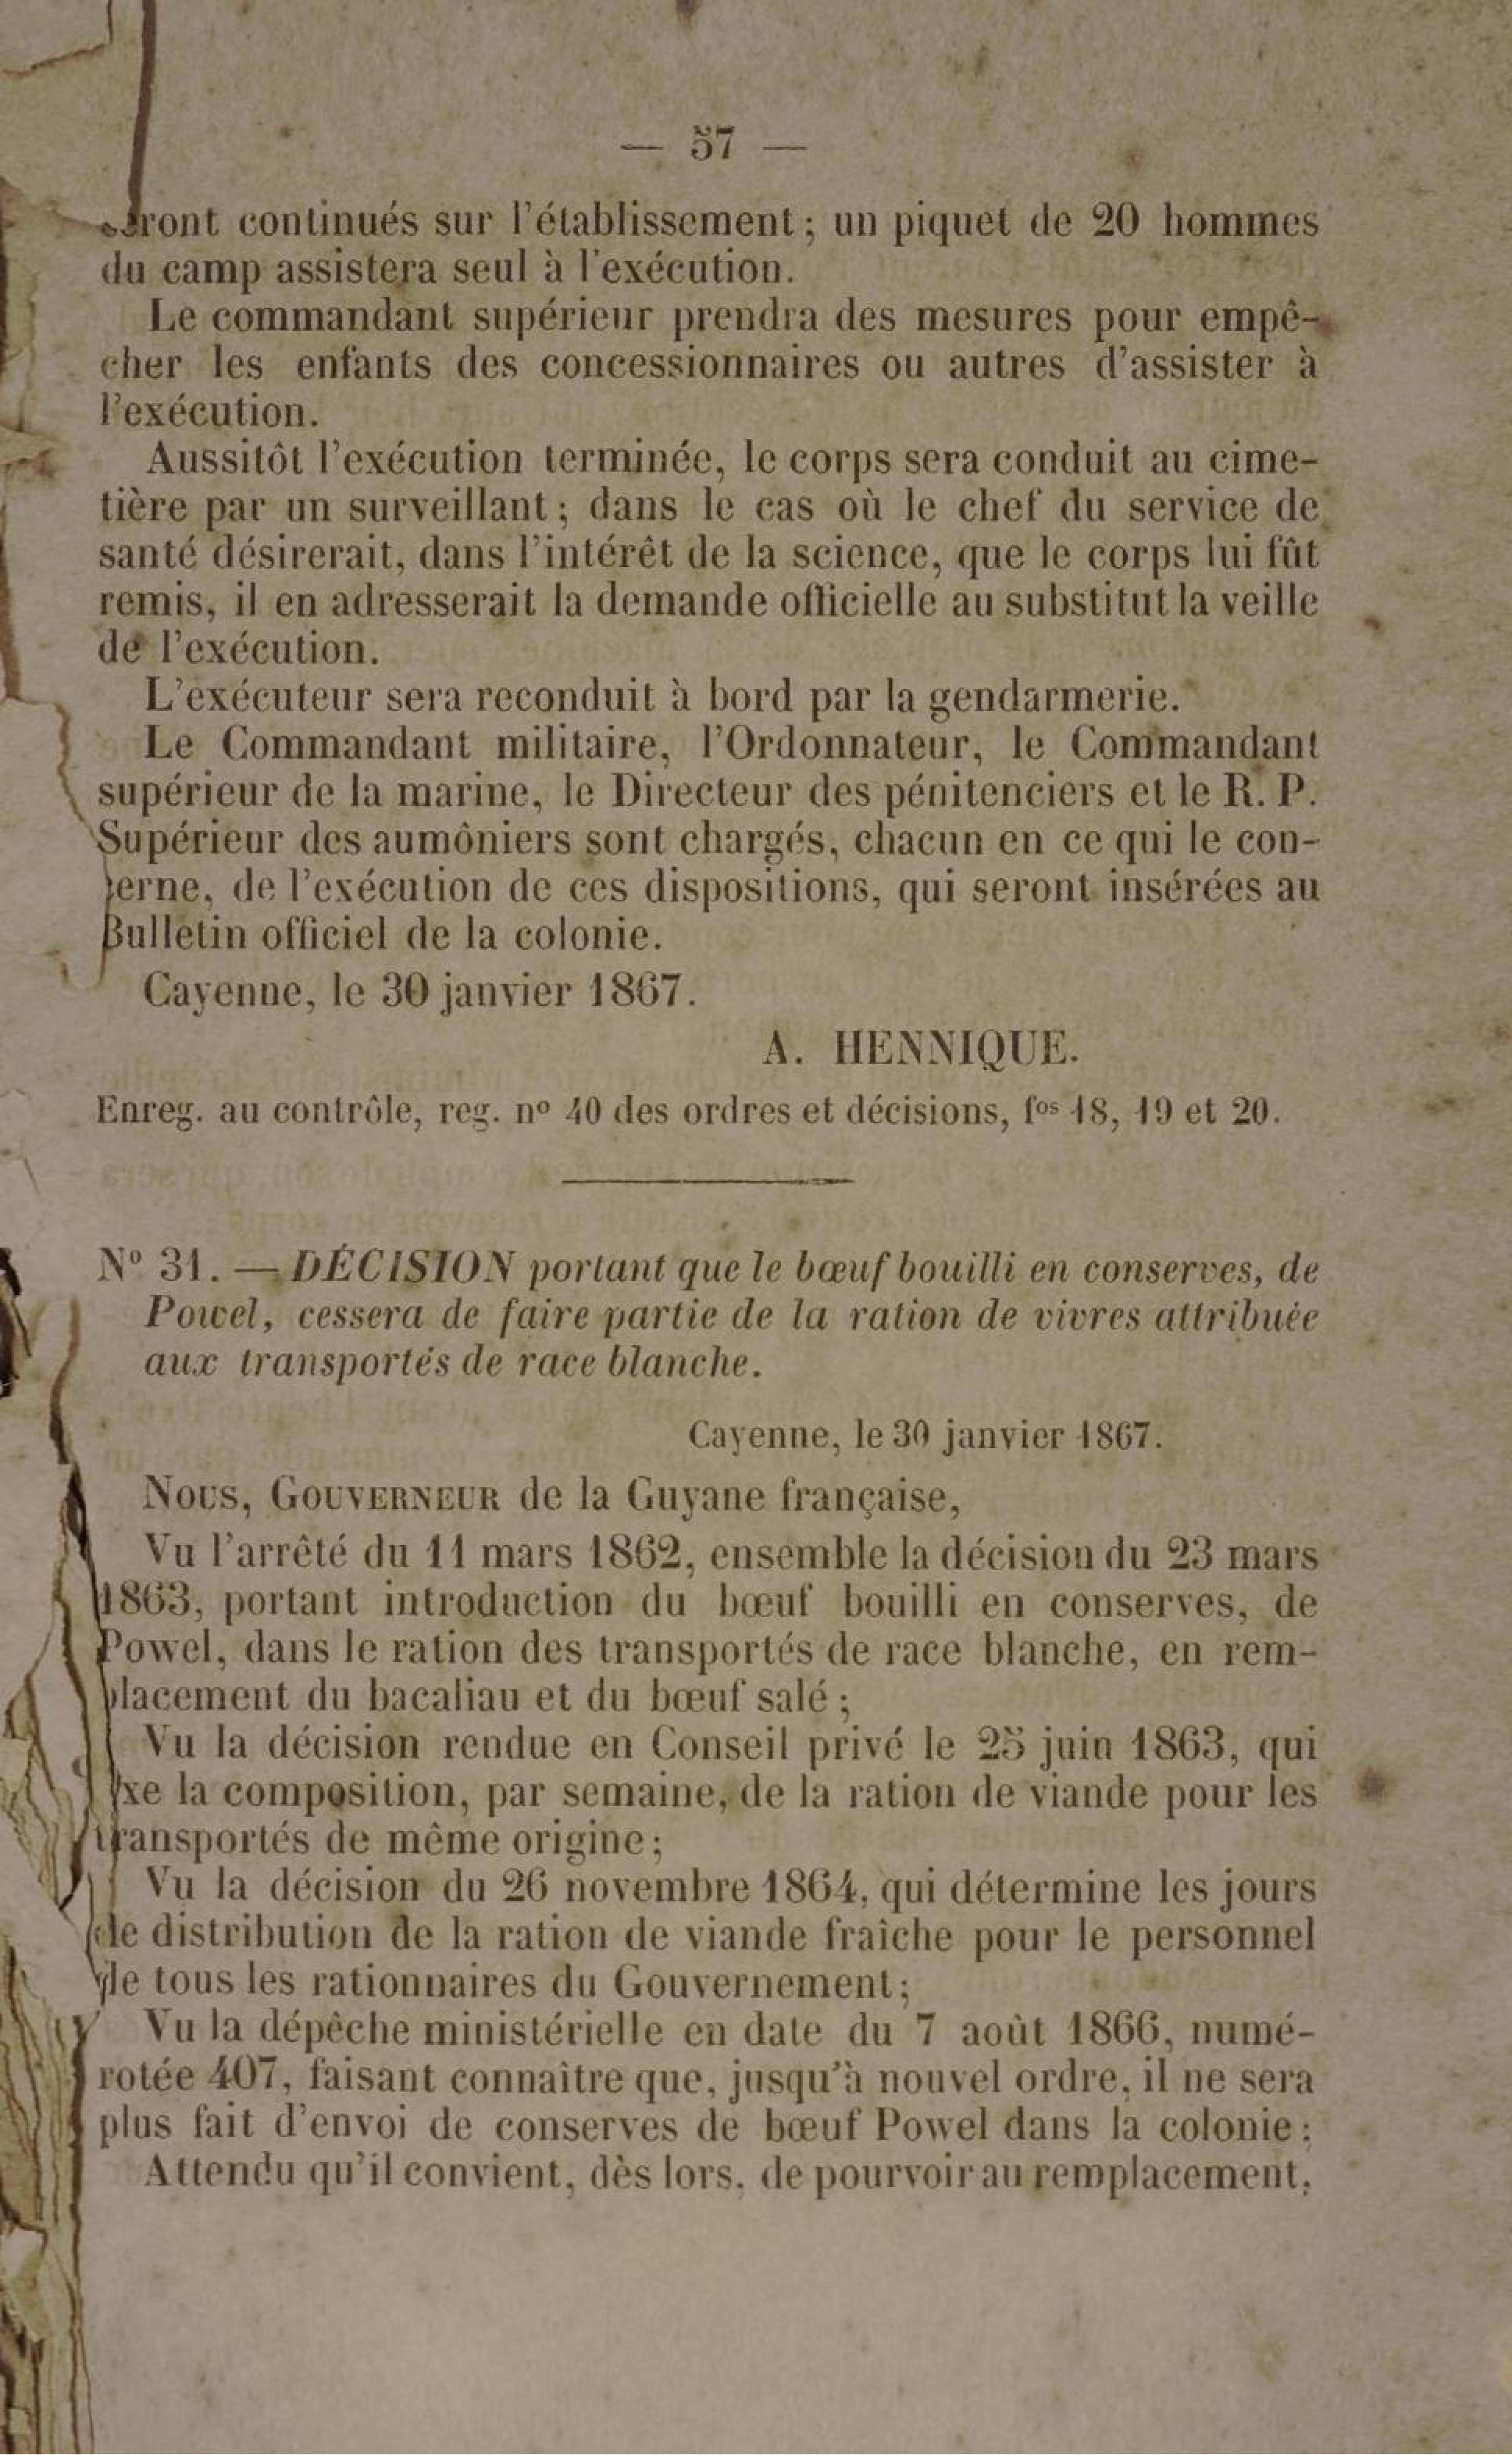 — 57 —
seront continués sur l'établissement ; un piquet de 20 hommes
du camp assistera seul à l'exécution.
Le commandant supérieur prendra des mesures pour empê-
cher les enfants des concessionnaires ou autres d'assister à
l'exécution.
Aussitôt l'exécution terminée, le corps sera conduit au cime-
tière par un surveillant ; dans le cas où le chef du service de
santé désirerait, dans l'intérêt de la science, que le corps lui fût
remis, il en adresserait la demande officielle au substitut la veille
de l'exécution.
L'exécuteur sera reconduit à bord par la gendarmerie.
Le Commandant militaire, l'Ordonnateur, le Commandant
supérieur de la marine, le Directeur des pénitenciers et le R. P.
Supérieur des aumôniers sont chargés, chacun en ce qui le con-
cerne, de l'exécution de ces dispositions, qui seront insérées au
Bulletin officiel de la colonie.
Cayenne, le 30 janvier 1867.
A. HENNIQUE.
Enreg. au contrôle, reg. nº 40 des ordres et décisions, fos 18, 19 et 20.
Nº 31. — DÉCISION portant que le bœuf bouilli en conserves, de
Powel, cessera de faire partie de la ration de vivres attribuée
aux transportés de race blanche.
Cayenne, le 30 janvier 1867.
NOUS, GOUVERNEUR de la Guyane française,
Vu l'arrêté du 11 mars 1862, ensemble la décision du 23 mars
1863, portant introduction du bœuf bouilli en conserves, de
Powel, dans le ration des transportés de race blanche, en rem-
placement du bacaliau et du bœuf salé ;
Vu la décision rendue en Conseil privé le 25 juin 1863, qui
fixe la composition, par semaine, de la ration de viande pour les
transportés de même origine ;
Vu la décision du 26 novembre 1864, qui détermine les jours
de distribution de la ration de viande fraîche pour le personnel
de tous les rationnaires du Gouvernement ;
Vu la dépêche ministérielle en date du 7 août 1866, numé-
rotée 407, faisant connaître que, jusqu'à nouvel ordre, il ne sera
plus fait d'envoi de conserves de bœuf Powel dans la colonie ;
Attendu qu'il convient, dès lors, de pourvoir au remplacement,